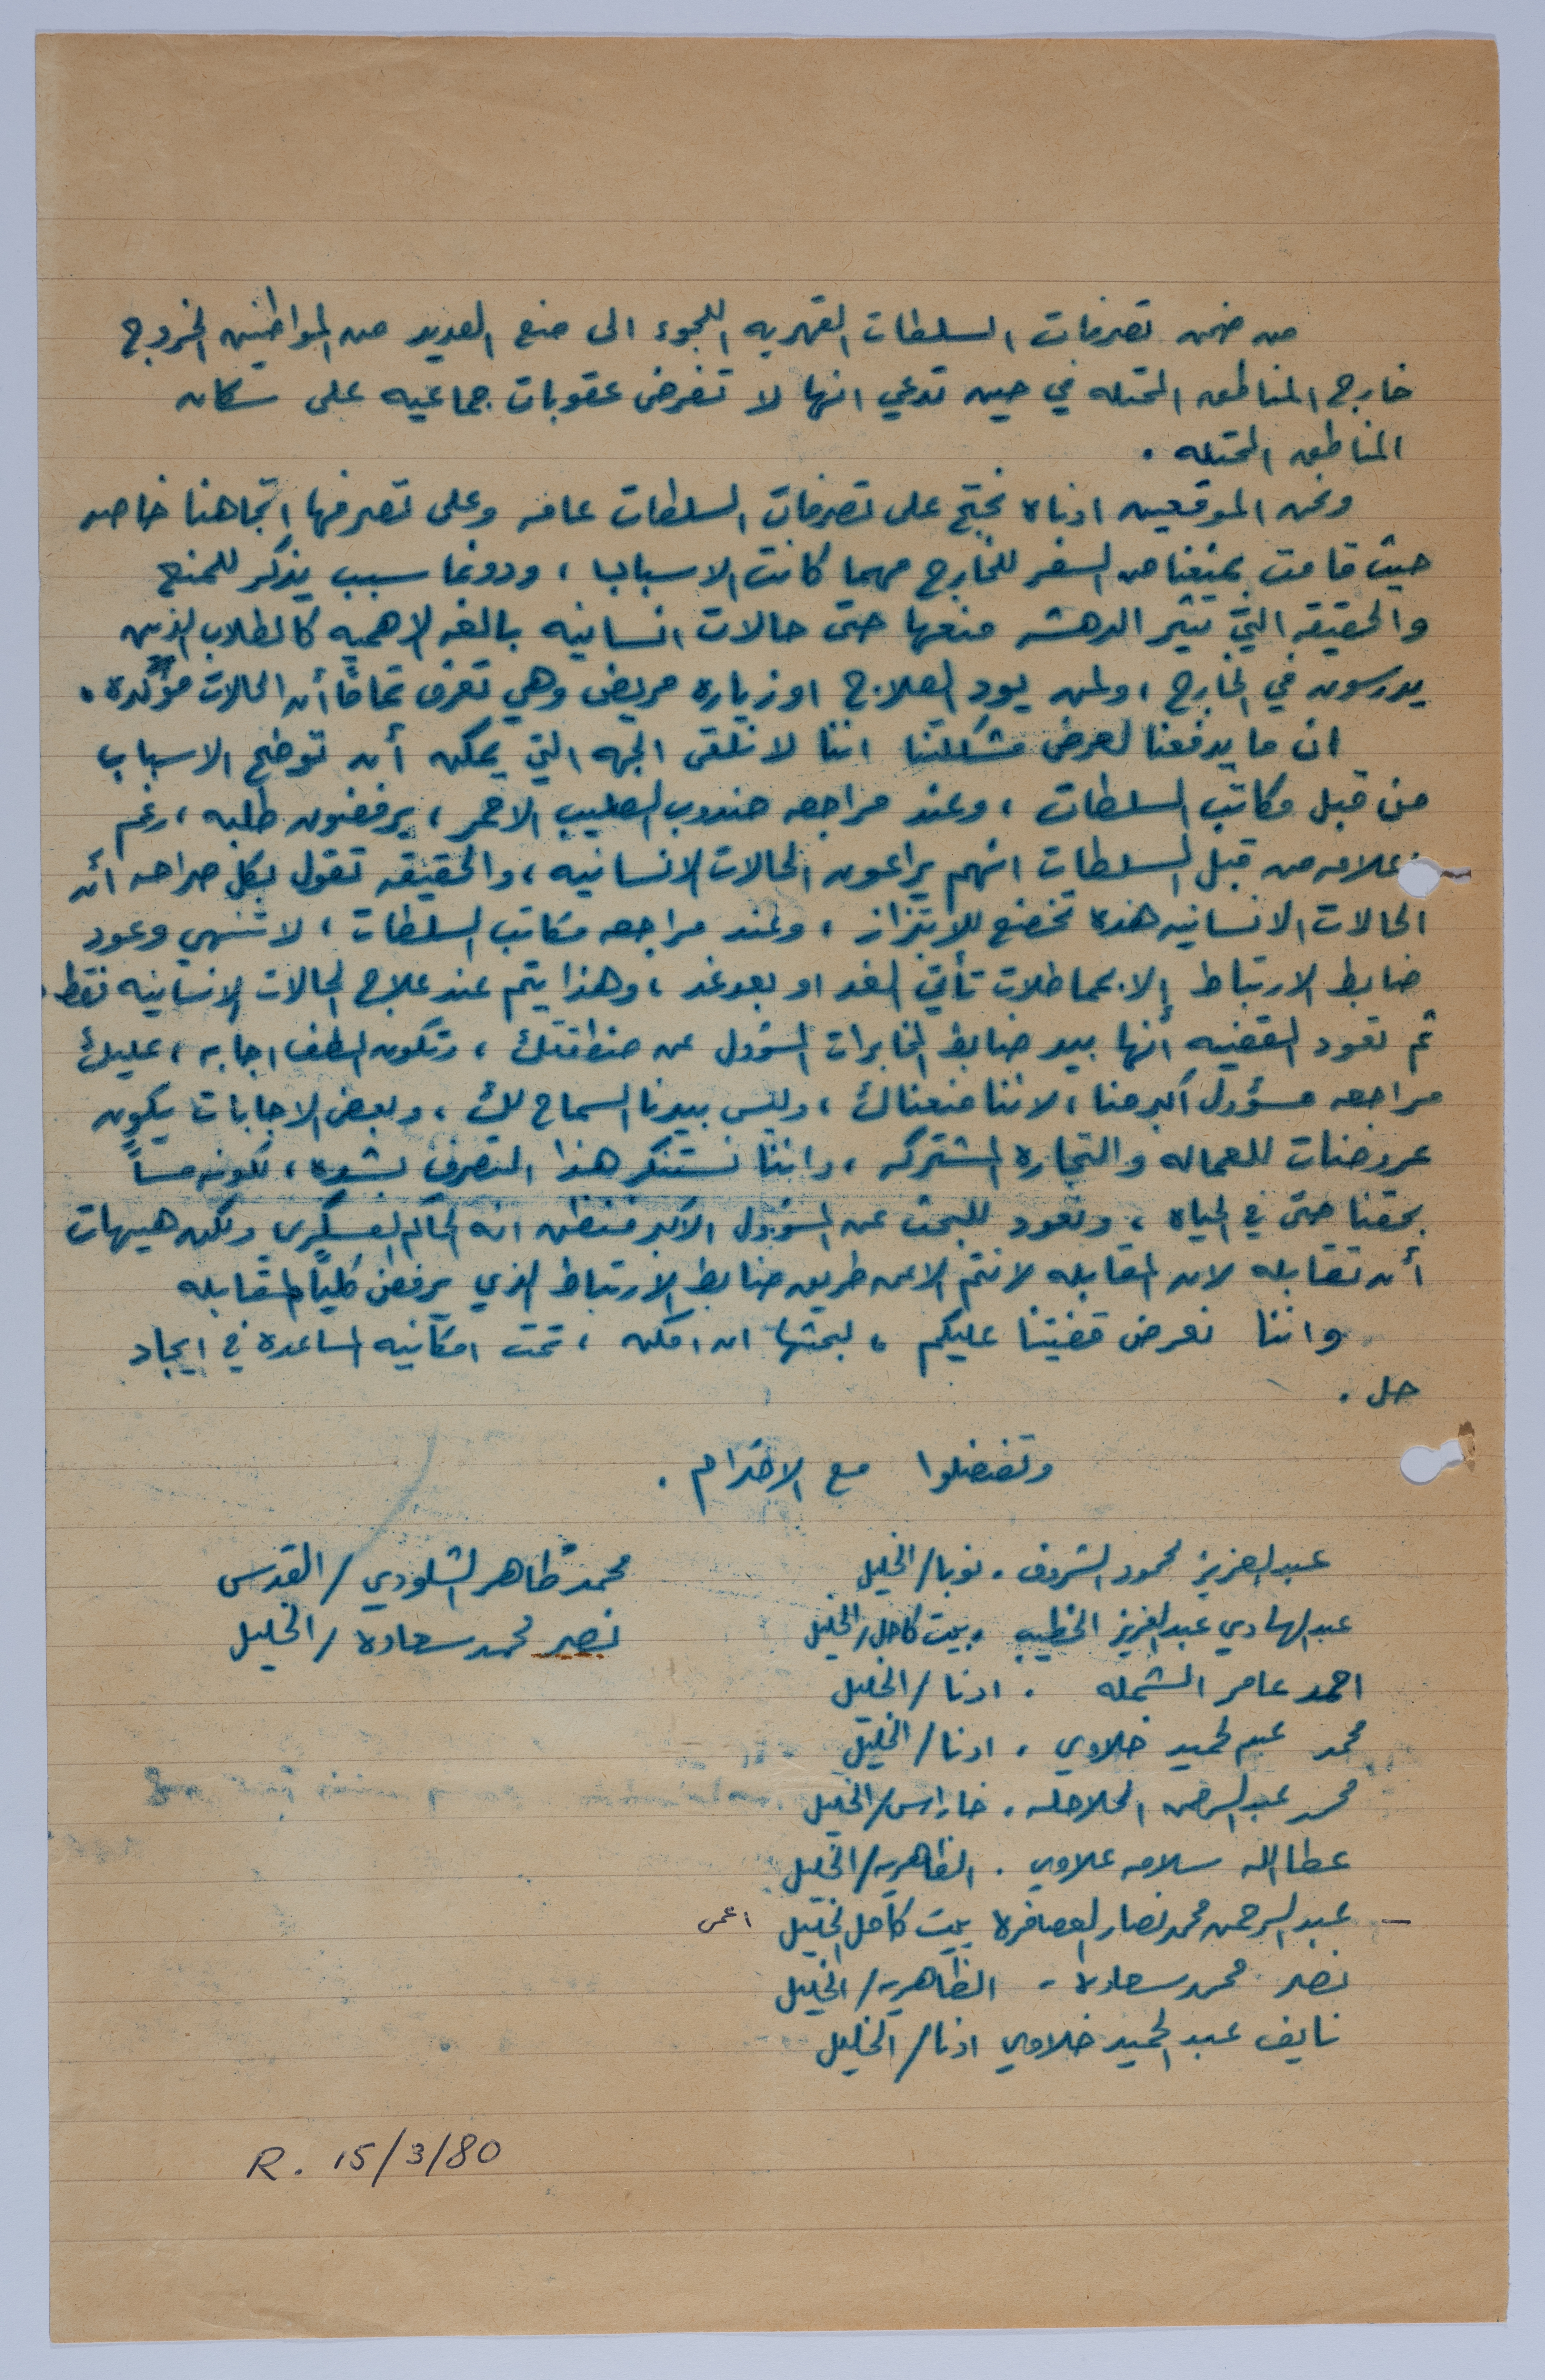 من ضمن تصرفات السلطات القهريه اللجوء الى منع العديد من المواطنين الخروج
خارج المناطق المحتله في حين تدعي انها لا تفرض عقوبات جماعيه على سكان
المناطق المحتله .
ونحن الموقعين ادناه نحتج على تصرفات السلطات عامه وعلى تصرفها اتجاهنا خاصه
حيث قامت بمنعنا من السفر للخارج مهما كانت الاسباب ، ودونما سبب يذكر للمنع
والحقيقه التي تثير الدهشه منعها حتى حالات انسانيه بالغه الاهميه كالطلاب الذين
يدرسون في الخارج ، ولمن يود العلاج او زياره مريض وهي تعرف تماماً أن الحالات مؤكده .
ان ما يدفعنا لعرض مشكلتنا اننا لا نلقى الجهه التي يمكن أن توضح الاسباب
من قبل مكاتب السلطات ، وعند مراجعه مندوب الصليب الاحمر ، يرفضون طلبه ، رغم
علامه من قبل السلطات انهم يراعون الحالات الانسانيه ، والحقيقه تقول بكل صراحه أن
الحالات الانسانيه هذه تخضع للابتزاز ، وعند مراجعه مكاتب السلطات ، لا تنتهي وعود
ضابط الارتباط إلا بمماطلات تأتي الغد او بعد غد ، وهذا يتم عند علاج الحالات الانسانيه فقط .
ثم تعود القضيه أنها بيد ضابط المخابرات المسؤول عن منطقتك ، وتكون الطف اجابه ، عليك
مراجعه مسؤول اكبر منا ، لاننا منعناك ، وليس بيدنا السماح لك ، وبعض الاجابات يكون
عروضات للعماله والتجاره المشتركه ، واننا نستنكر هذا التصرف بشده ، لكونه مساً
بحقنا حتى في الحياه ، ونعود للبحث عن المسؤول الاكبر فنظن انه الحاكم العسكري ولكن هيهات
أن تقابله لان المقابله لا تتم الا عن طريق ضابط الارتباط الذي يرفض كلياً المقابله
واننا نعرض قضيتنا عليكم ، لبحثها ان امكن ، تحت امكانيه المساعده في ايجاد
حل .
وتفضلوا مع الاحترام .
عبد العزيز محمود الشروف . نوبا / الخليل
عبد الهادي عبد العزيز الخطيب . بيت كاحل / الخليل
احمد عامر الشمله . اذنا / الخليل
محمد عبد الحميد خلاوي . اذنا / الخليل
محمد عبد الرحمن الحلاحله . خاراس / الخليل
عطا الله سلامه علاوي . الظاهريه / الخليل
– عبد الرحمن محمد نصار العصافره بيت كاحل الخليل اعمى
نصر محمد سعاده - الظاهريه / الخليل
نايف عبد الحميد خلاوي اذنا / الخليل
محمد طاهر الشلودي / القدس
نصر محمد سعاده / الخليل
R. 15/3/80